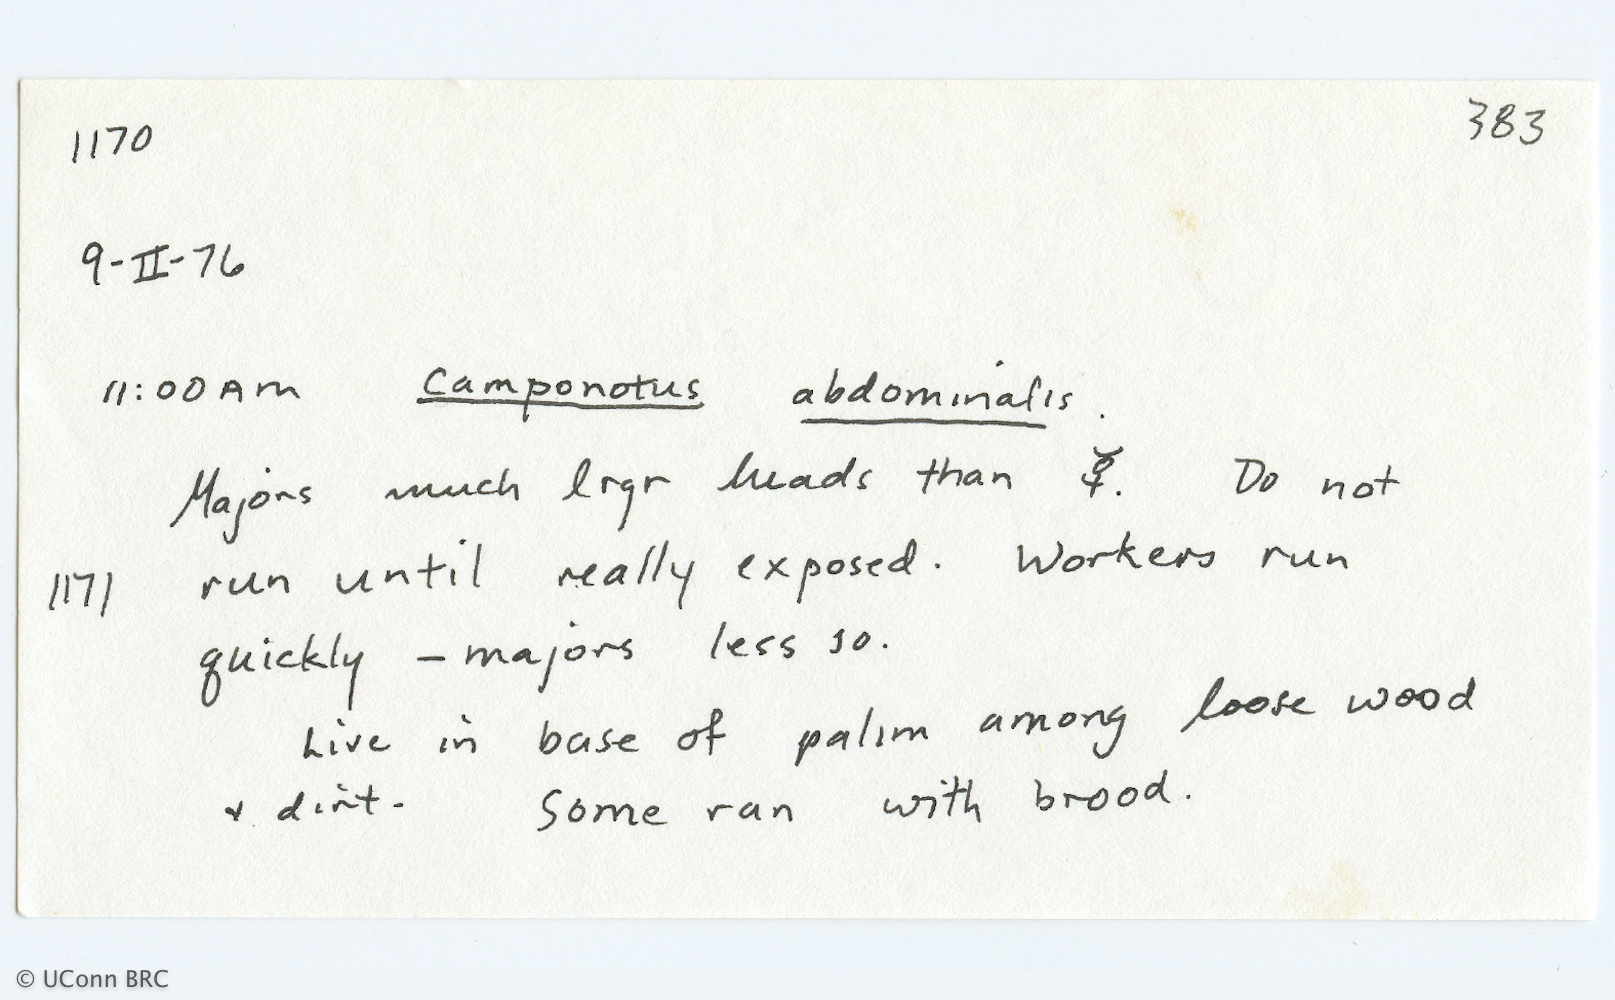 1170 383
9-II-76
11:00 AM Camponotus abdominalis.
Majors much lrgr heads than ☿. Do not
1171 run until really exposed. Workers run
quickly – majors less so.
Live in base of palm among loose wood
+ dirt. Some ran with brood.
© UConn BRC